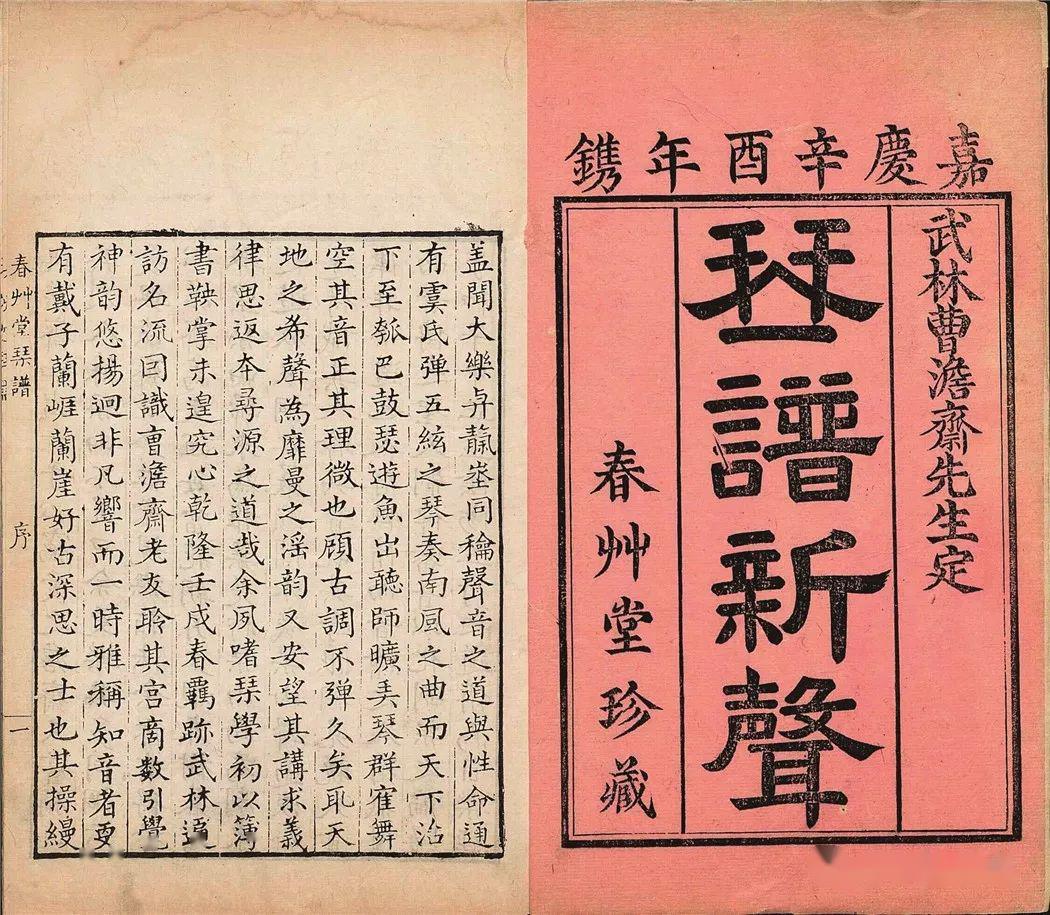 嘉慶辛酉年鐫
武林曹澹齋先生定
琹譜新聲
春艸堂珍藏
盖聞大樂靝埊同龢聲音之道與性命通
有虞氏弹五絃之琴奏南風之曲而天下治
下至瓠巴鼓瑟遊魚出聽師曠琴群隺舞
空其音正其理微也顧古調不弹久矣耴天
地之希聲為靡曼之滛韵又安望其講求義
律思返本尋源之道哉余夙嗜琹學初以簿
書鞅掌未遑究心乾隆壬戍春覊跡武林遍
訪名流囙識曺澹齋老友聆其宫商数引覺
神韵悠揚迥非凡響而一時雅稱知音者更
有戴子蘭崕蘭崖好古深思之士也其操縵
春艸堂琹譜 序 一